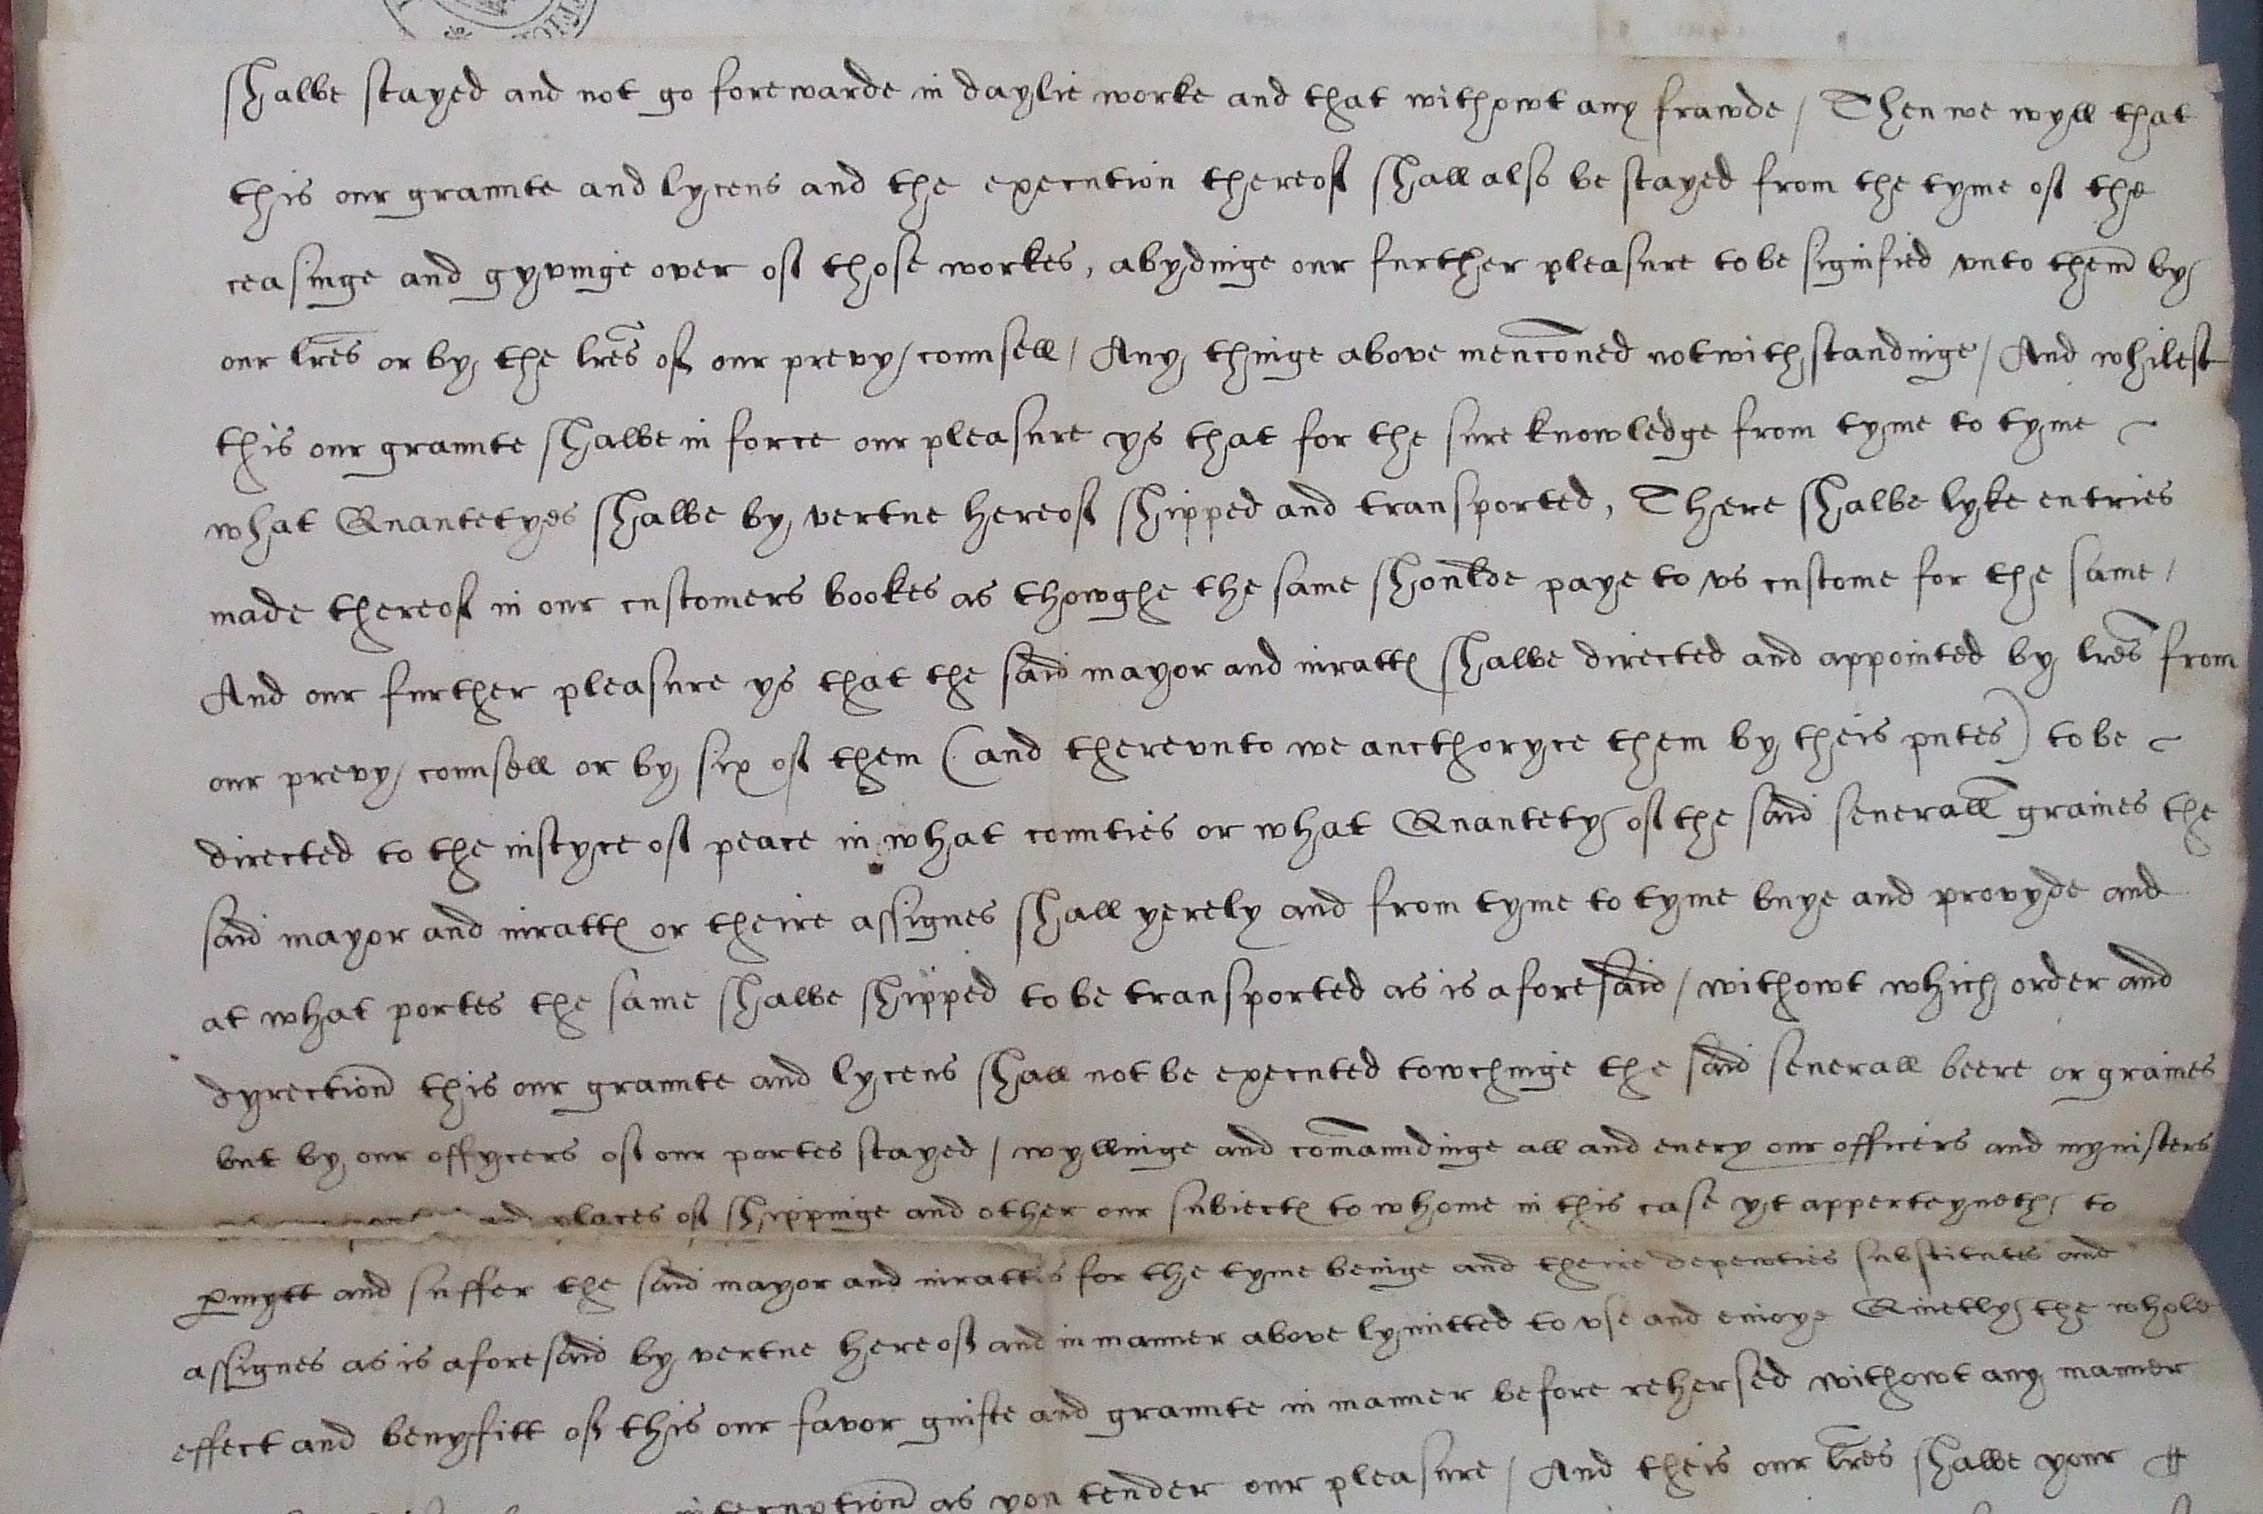 shalbe stayed and not go forewarde in daylie worke and that withowt any frawde / Then we wyll that
this our graunte and lycens and the execution thereof shall also be stayed from the tyme of the
ceasinge and gyvinge over of those workes, abydinge our further pleasure to be signified vnto them̃ by
our lr̃es or by the lr̃es of our prevy counsell / Any thinge above menc̃oned notwithstandinge / And whilest
this our graunte shalbe in force our pleasure ys that for the sure knowledge from tyme to tyme ~
what Quantetyes shalbe by vertue hereof shipped and transported, There shalbe lyke entries
made thereof in our customers bookes as thowghe the same shoulde paye to vs custome for the same /
And our further pleasure ys that the said mayor and iurattꝭ shalbe directed and appointed by lr̃es from
our prevy counsell or by six of them (and therevnto we aucthoryce them by theis pn̄tes) to be ~
directed to the iustyce of peace in what counties or what Quantety of the said seuerall graines the
said mayor and iurattꝭ or theire assignes shall yerely and from tyme to tyme buye and provyde and
at what portes the same shalbe shipped to be transported as is aforesaid / withowt which order and
dyrection̄ this our graunte and lycens shall not be executed towchinge the said seuerall beere or graines
but by our offycers of our portes stayed / wyllinge and com̄aundinge all and euery our officers and mynisters
places of shippinge and other our subiectꝭ to whome in this case yt apperteyneth to
ꝑmytt and suffer the said mayor and iurattes for the tyme beinge and theire depewties substitutes and
assignes as is aforesaid by vertue hereof and in manner above lymitted to vse and enioye Quietly the whole
effect and benyfitt of this our favor guifte and graunte in manner before rehersed withowt any manner
interuption̄ as you tender our pleasure / And theis our lr̃es shalbe your